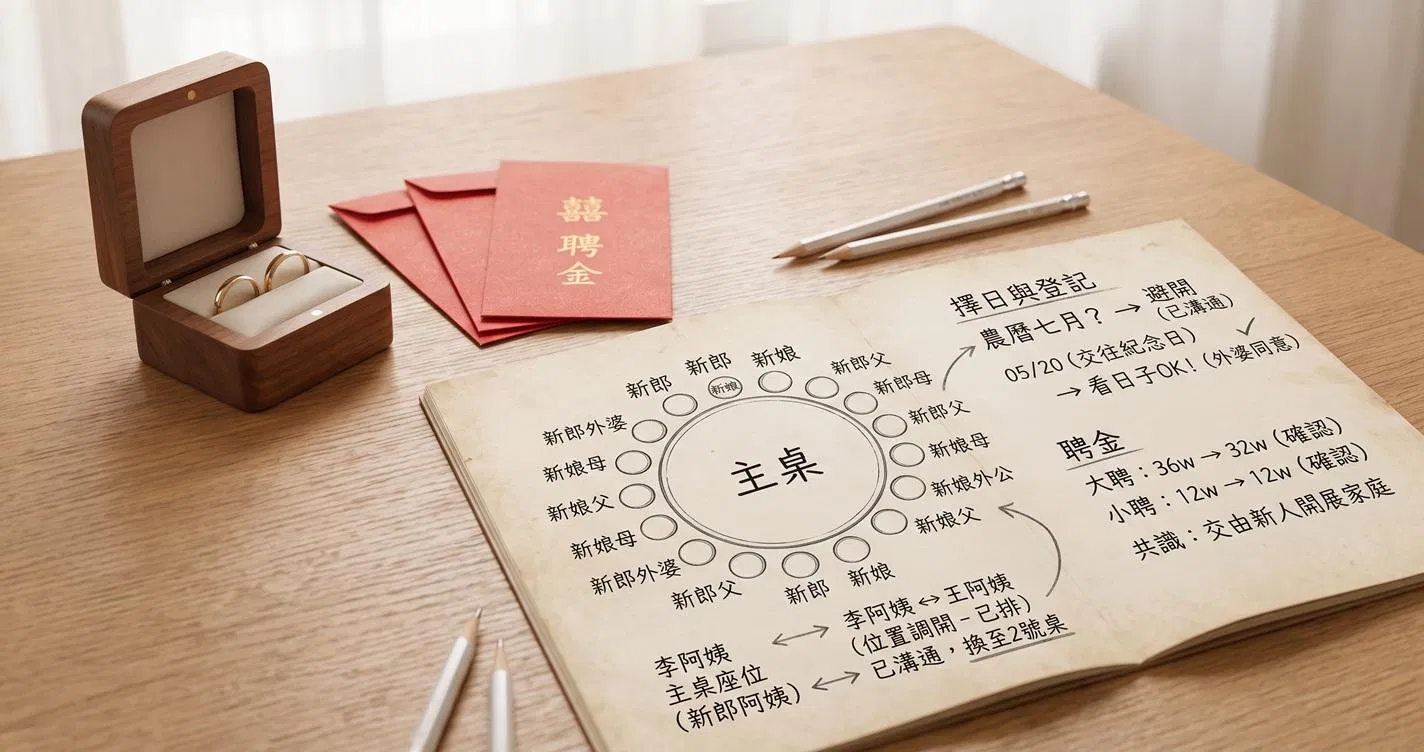 囍
聘
金
擇日與登記
農曆七月？ → 避開
(已溝通)
05/20 (交往紀念日) ✓
→ 看日子OK! (外婆同意)
聘金
大聘：36w → 32w (確認)
小聘：12w → 12w (確認)
共識：交由新人開展家庭
主桌
新郎
新郎
新娘
新娘
新郎父
新郎母
新郎父
新娘母
新娘外公
新娘父
新娘
新郎
新郎父
新郎外婆
新娘母
新娘父
新娘母
新郎外婆
李阿姨
主桌座位
(新郎阿姨)
李阿姨 ↔ 王阿姨
(位置調開 - 已排)
已溝通，換至2號桌